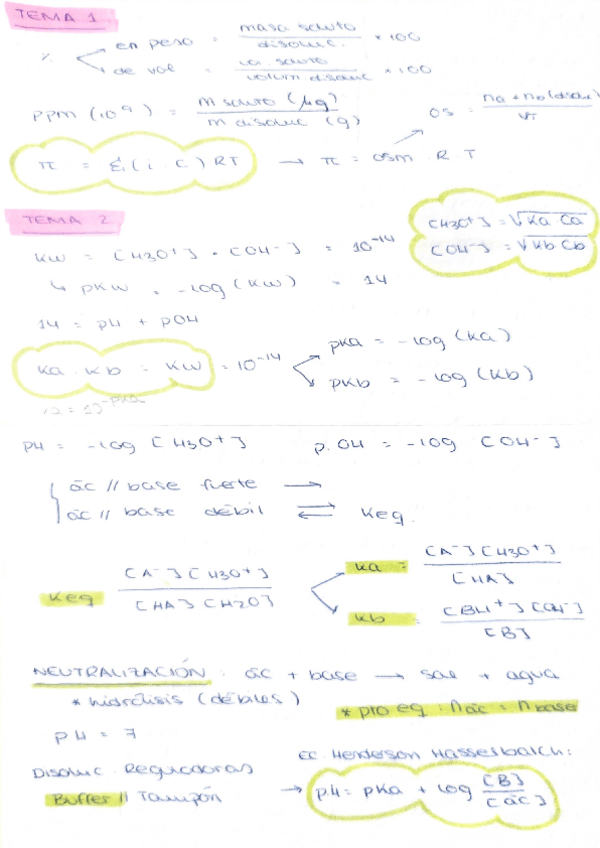 TEMA 1
% en peso = masa soluto / disoluc. × 100
de vol = vol. soluto / volum disoluc × 100
ppm (10⁹) = m soluto (μg) / m disoluc (g)
os = na + nb (disoluc) / VT
π = Σi (i · c) RT → π = osm · R · T
TEMA 2
[H3O+] = √Ka Ca
[OH-] = √Kb Cb
Kw = [H3O+] · [OH-] = 10⁻¹⁴
↳ pKw = -log (Kw) = 14
14 = pH + pOH
Ka · Kb = Kw = 10⁻¹⁴
pKa = -log (Ka)
pKb = -log (Kb)
Ka = 10⁻ᵖᴷᵃ
pH = -log [H3O+] p.OH = -log [OH-]
ác // base fuerte →
ác // base débil ⇌ Keq.
Keq [A-] [H3O+] / [HA] [H2O]
Ka = [A-] [H3O+] / [HA]
Kb = [BH+] [OH-] / [B]
NEUTRALIZACIÓN: ác + base → sal + agua
* hidrólisis (débiles)
* pto eq: n ác = n base
pH = 7
Disoluc. Reguladoras
Buffer // Tampón
Ec. Henderson Hasselbalch:
→ pH = pKa + log [B] / [ác]